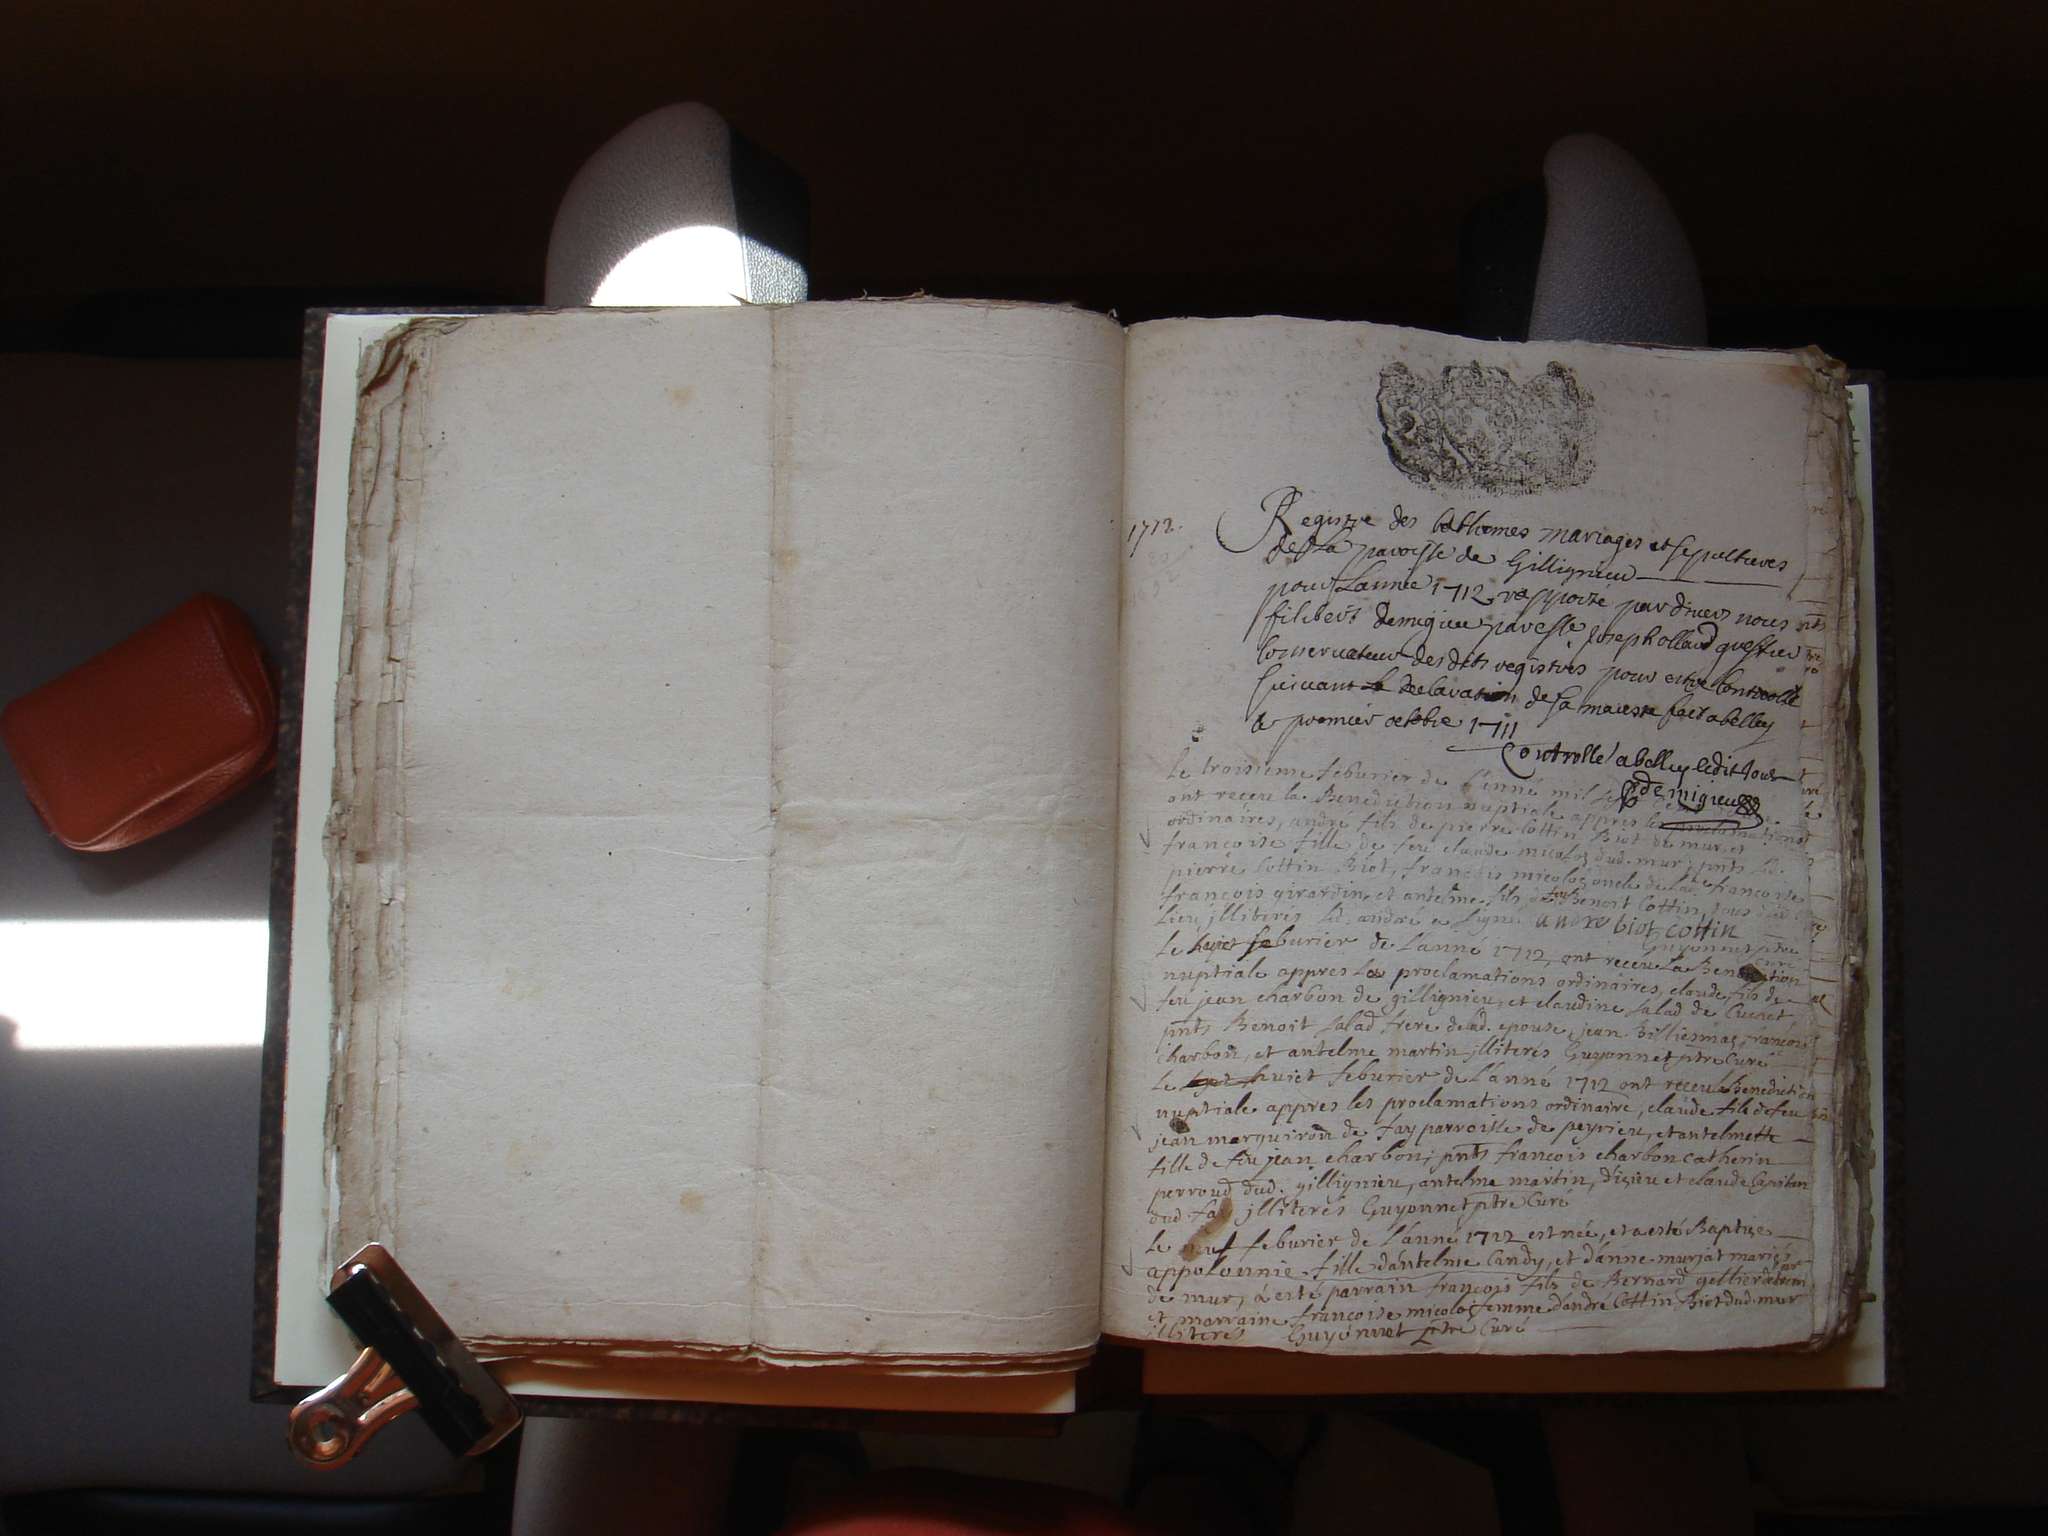 1712.
Registre des bathemes mariages et sepultures
de la paroisse de Gillignieu
pour Lannée 1712 par devers nous
filibert demigieu
conservateur des dits registres pour estre controllé
suivant la declaration de sa maieste fait a belley
le premier octobre 1711
Controllé a belley ledit Jour
demigieu
Le troisieme feburier de l'anné mil sept
ont receu la Benediction nuptiale appres les proclamations
ordinaires, andré fils de pierre Cottin Biot de mur, et
francoise fille de feu claude micoloz dud. mur; pnts led.
pierre Cottin Biot, francois micoloz oncle de lad. francoise
francois girardin, et antelme fils de feu Benoit Cottin, tous dud.
Lieu, jlliterés Led. andré a signé andre biot cottin
Guyonnet ptre
Curé
Le huict feburier de L'anné 1712, ont receu La Benediction
nuptiale appres Les proclamations ordinaires, claude, fils de
feu jean charbon de gillignieu, et claudine salad de Cuenet
pnts Benoit salad frere de lad. epouse, jean Billiemaz, francois
charbon, et antelme martin jlliterés Guyonnet ptre Curé
Le sept huict feburier de L'anné 1712 ont receu la Benediction
nuptiale appres les proclamations ordinaire, claude fils de feu
jean marguiron de fay parroisse de peyrieu, et antelmette
fille de feu jean charbon; pnts francois charbon catherin
perroud dud. gillignieu, antelme martin, d'izieu et claude Capitan
dud. fay jlliterés Guyonnet ptre Curé
Le neuf feburier de L'anné 1712 est née, et a esté Baptize
appolonnie fille d'antelme Candy, et d'anne murjat mariés
de mur, a esté parrain francois fils de Bernard gellier
et marraine francoise micoloz femme d'andré Cottin Biot dud. mur
jlliterés Guyonnet ptre Curé